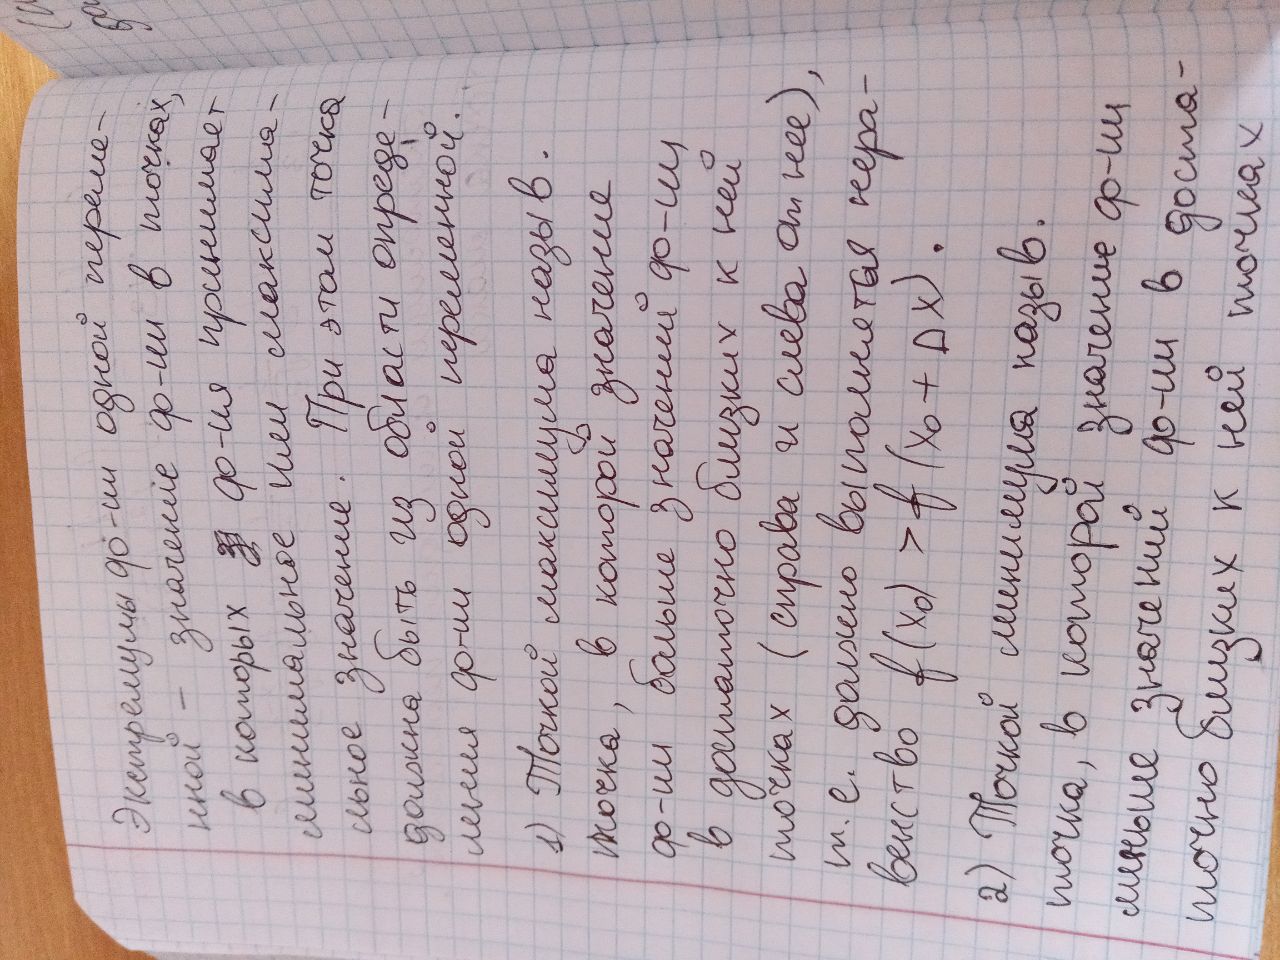 Экстремумы ф-ии одной переме-
нной – значение ф-ии в точках,
в которых ф-ия принимает
минимальное или максима-
льное значение. При этом точка
должна быть из области опреде-
ления ф-ии одной переменной.
1) Точкой максимума назыв.
точка, в которой значение
ф-ии больше значений ф-ии
в достаточно близких к ней
точках (справа и слева от нее),
т.е. должно выполнятся нера-
венство f(x₀) > f(x₀ + Δx).
2) Точкой минимума назыв.
точка, в которой значение ф-ии
меньше значений ф-ии в доста-
точно близких к ней точках